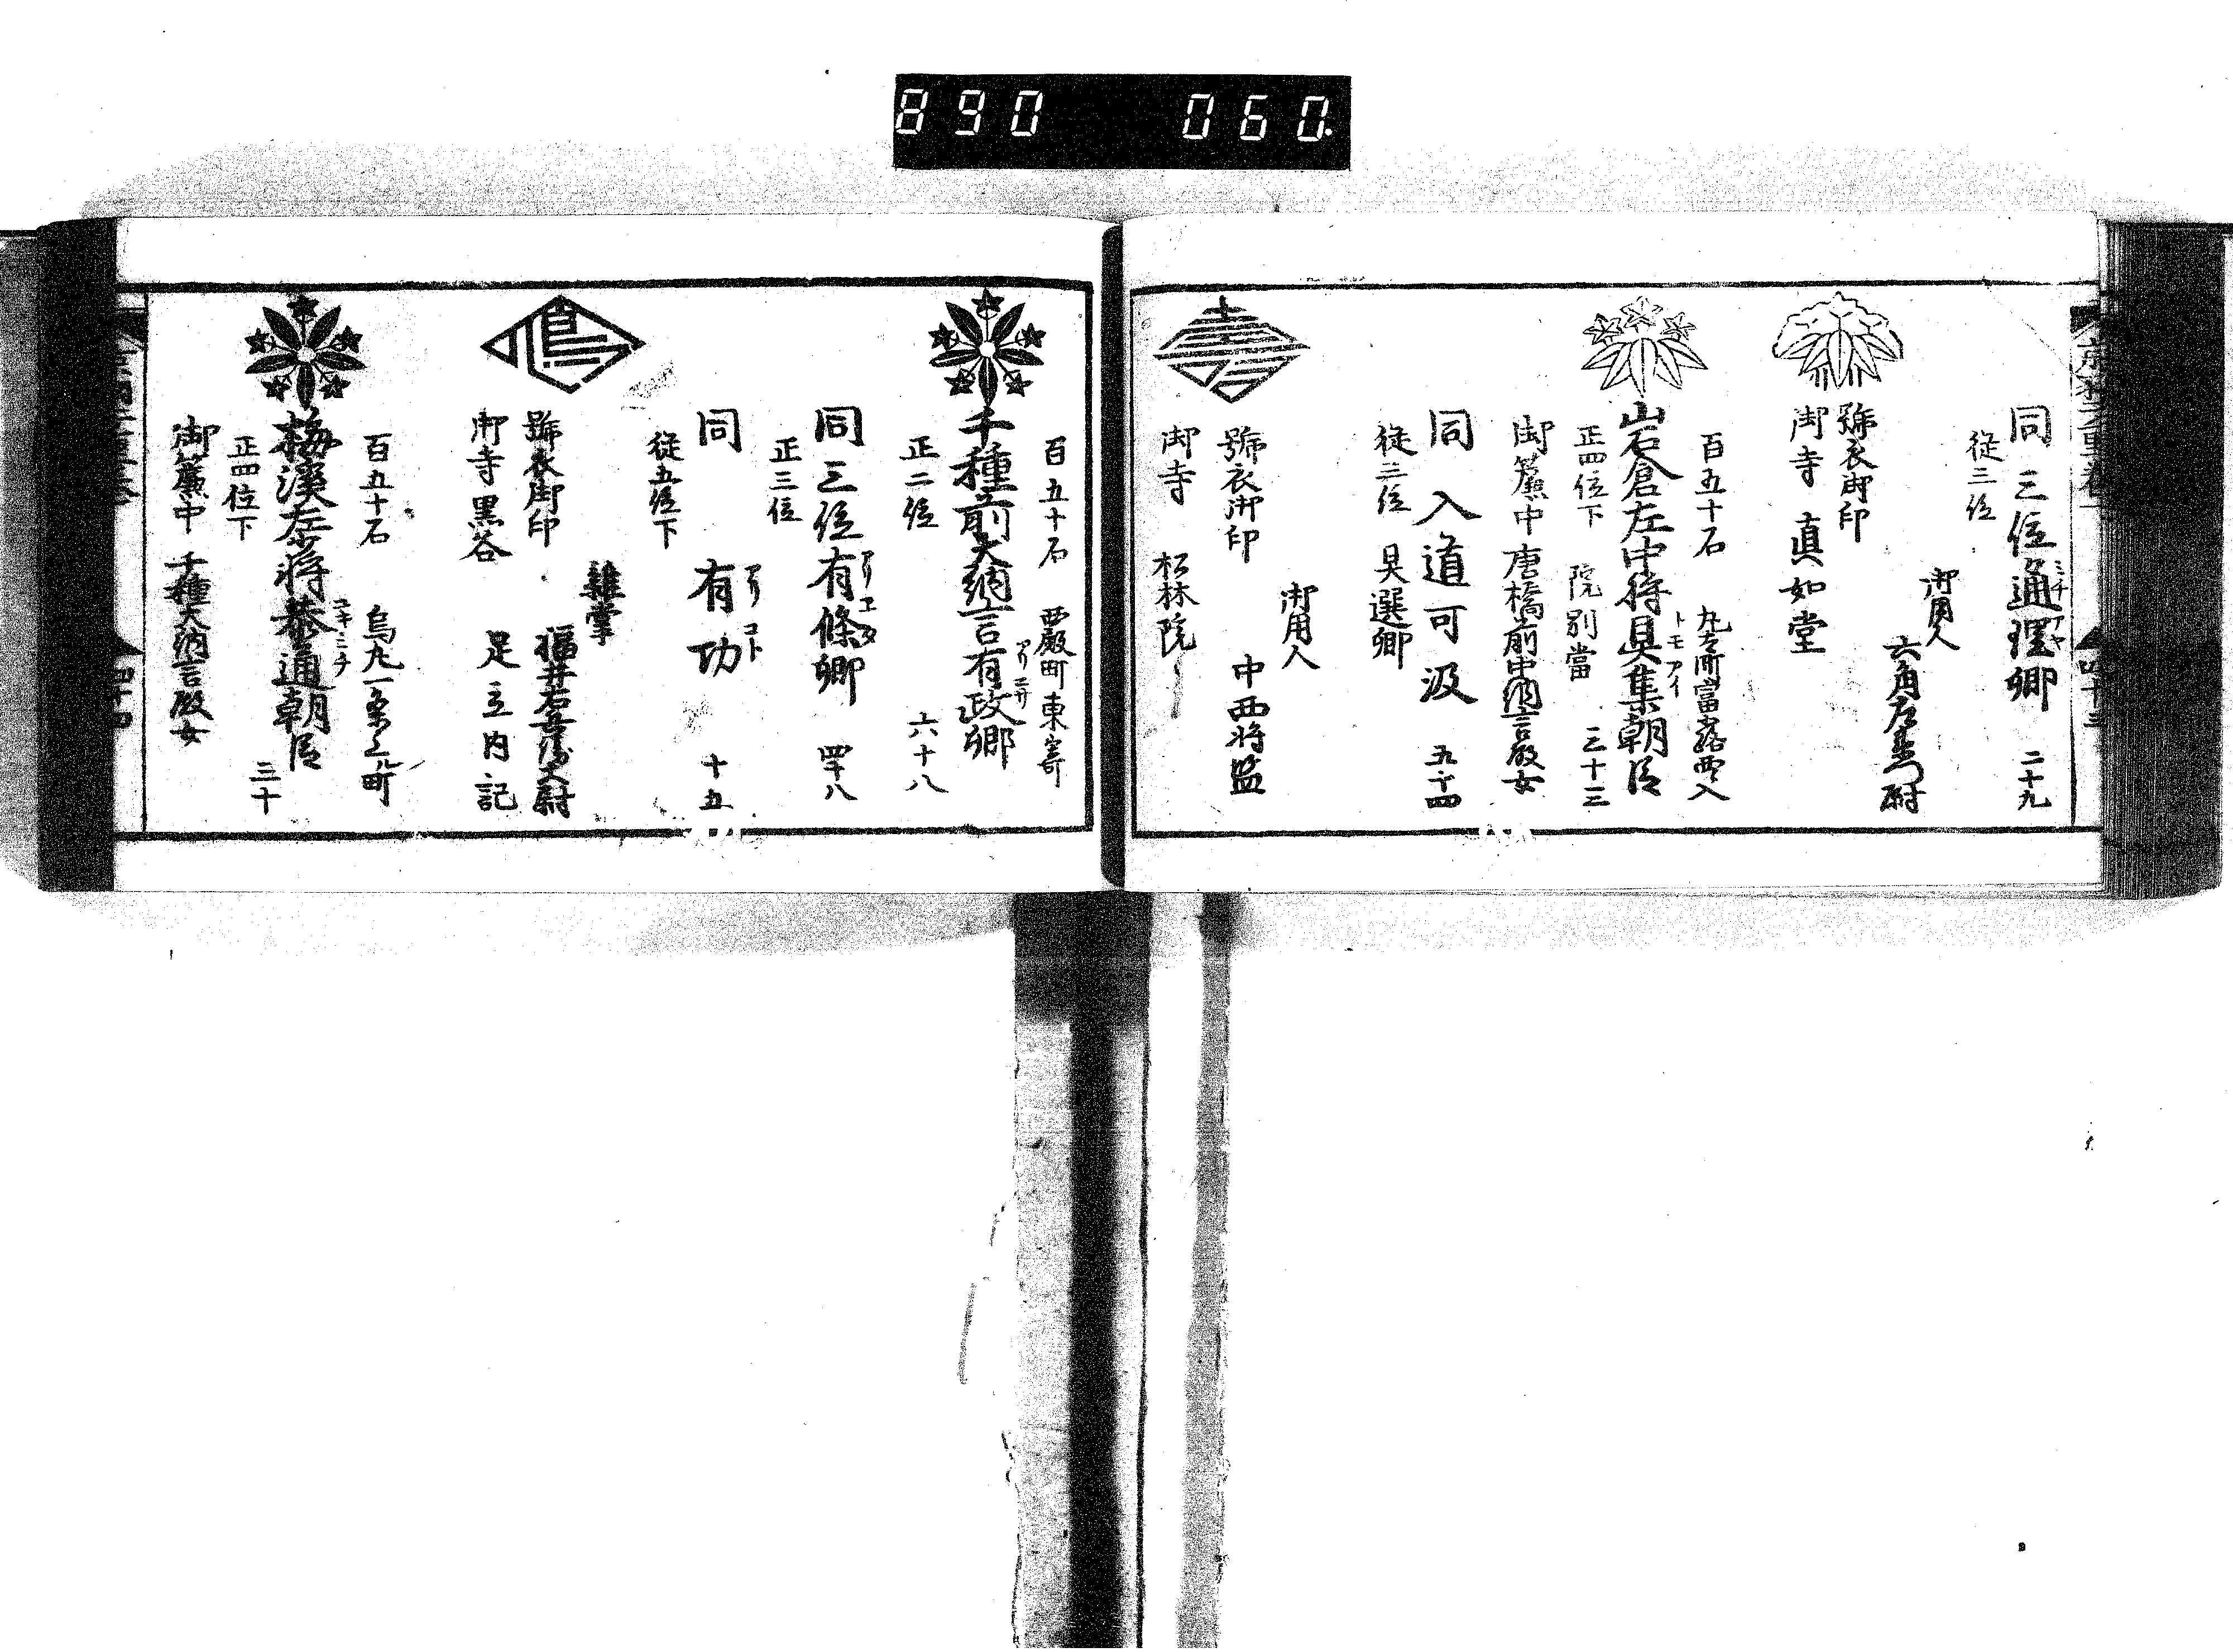 890 060.
同 三位通理卿 二十九
ミチアヤ
従三位
御用人
六角左衛門尉
號衣御印
御寺 眞如堂
百五十石
正四位下 院別當 三十三
岩倉左中将具集朝臣
トモアイ
御簾中 唐橋前中納言殿女
同 入道可汲 五十四
従三位 具選卿
御用人
中西将監
號衣御印
御寺 松林院
百五十石 西殿町東寄
千種前大納言有政卿
アリマサ
正二位 六十八
同 三位有條卿 四十八
アリエタ
正三位
同 有功 十五
アリコト
従五位下
雜掌
福井右兵衛大尉
足立内記
號衣御印
御寺 黒谷
百五十石 烏丸一条上ル町
梅溪左少将恭通朝臣
ユキミチ
正四位下 三十
御簾中 千種大納言殿女